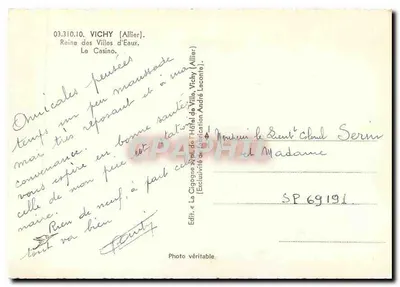 03.310.10. VICHY (Allier).
Reine des Villes d'Eaux.
Le Casino.
Amicales pensées
temps un peu maussade
mais très reposant et à ma
convenance.
vous espère en bonne santé
celle de mon père est
Rien de neuf, à part cela
tout va bien
Edit. « La Cigogne » de l'Hôtel de Ville, Vichy (Allier)
(Exclusivité de fabrication André Leconte).
CARTHAPHILE
Monsieur le Lieut<sup>t</sup> Colonel Serin
et Madame
SP 69191
Photo véritable.